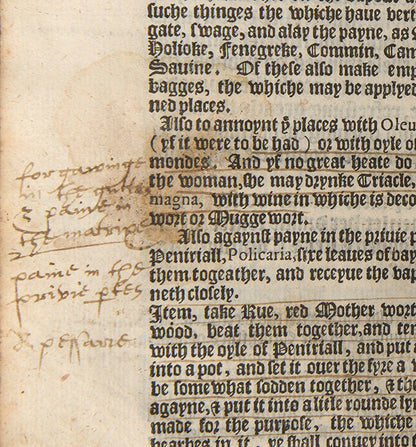 suche thinges the whiche haue vert
gate, swage, and alay the payne, as
Holioke, Fenegreke, Commin, Cam
Sauine. Of these also make emp
bagges, the whiche may be applyed
ned places.
Also to annoynt yͤ places with Oleu
(yf it were to be had) or with oyle of
mondes. And yf no great heate do
the woman, she may drynke Triacle,
magna, with wine in whiche is deco
wort or Muggewort.
Also agaynst payne in the priuie p
Peniriall, Policaria, sixe leaues of bay
them togeather, and receyue the vap
neth closely.
Item, take Rue, red Mother wort
wood, beat them together, and te
with the oyle of Peniriall, and put
into a pot, and set it ouer the fyre a
be somewhat sodden together, & th
agayne, & put it into a litle rounde ly
made for the purpose, the whiche
hearbes in it, ye shall conuey into
for gawinge
in the gutts
& paine in
the matrix
paine in the
privie ptes
& pessarie